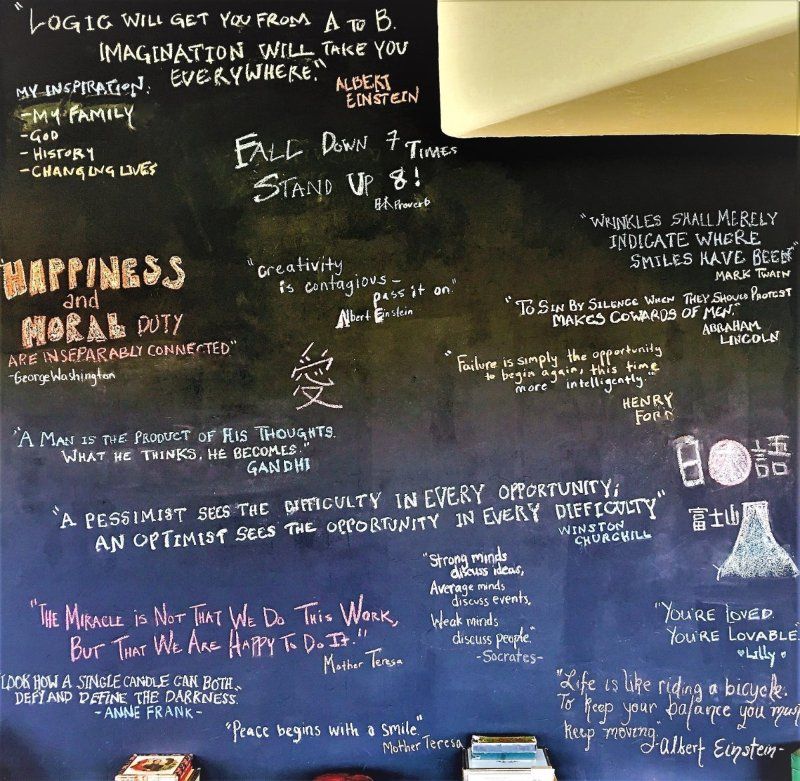 "LOGIC WILL GET YOU FROM A TO B.
IMAGINATION WILL TAKE YOU
EVERYWHERE."
ALBERT
EINSTEIN
MY INSPIRATION:
-MY FAMILY
-GOD
-HISTORY
-CHANGING LIVES
FALL DOWN 7 TIMES
STAND UP 8!
Proverb
"WRINKLES SHALL MERELY
INDICATE WHERE
SMILES HAVE BEEN"
MARK TWAIN
"HAPPINESS
and
MORAL DUTY
ARE INSEPARABLY CONNECTED"
-George Washington
"creativity
is contagious-
pass it on."
Albert Einstein
"TO SIN BY SILENCE WHEN THEY SHOULD PROTEST
MAKES COWARDS OF MEN."
ABRAHAM
LINCOLN
愛
"Failure is simply the opportunity
to begin again, this time
more intelligently."
HENRY
FORD
"A MAN IS THE PRODUCT OF HIS THOUGHTS.
WHAT HE THINKS, HE BECOMES."
GANDHI
日本語
富士山
"A PESSIMIST SEES THE DIFFICULTY IN EVERY OPPORTUNITY;
AN OPTIMIST SEES THE OPPORTUNITY IN EVERY DIFFICULTY"
WINSTON
CHURCHILL
"Strong minds
discuss ideas,
Average minds
discuss events,
Weak minds
discuss people."
-Socrates-
"THE MIRACLE IS NOT THAT WE DO THIS WORK,
BUT THAT WE ARE HAPPY TO DO IT."
Mother Teresa
"YOU'RE LOVED.
YOU'RE LOVABLE
Lilly
LOOK HOW A SINGLE CANDLE CAN BOTH
DEFY AND DEFINE THE DARKNESS.
-ANNE FRANK-
"Life is like riding a bicycle.
To keep your balance you must
keep moving."
-Albert Einstein-
"Peace begins with a smile"
Mother Teresa